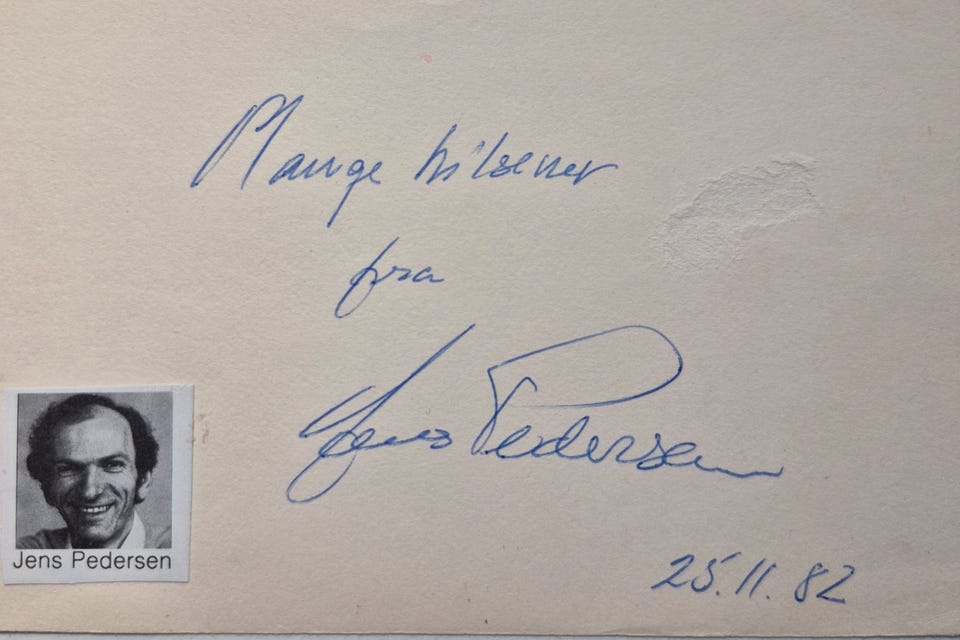 Mange hilsener
fra
Jens Pedersen
25.11.82
Jens Pedersen